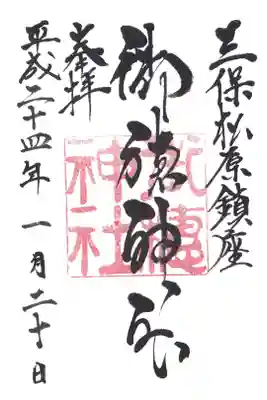 三保松原鎮座
御穂神社
奉拝
平成二十四年一月二十日
御穂神社